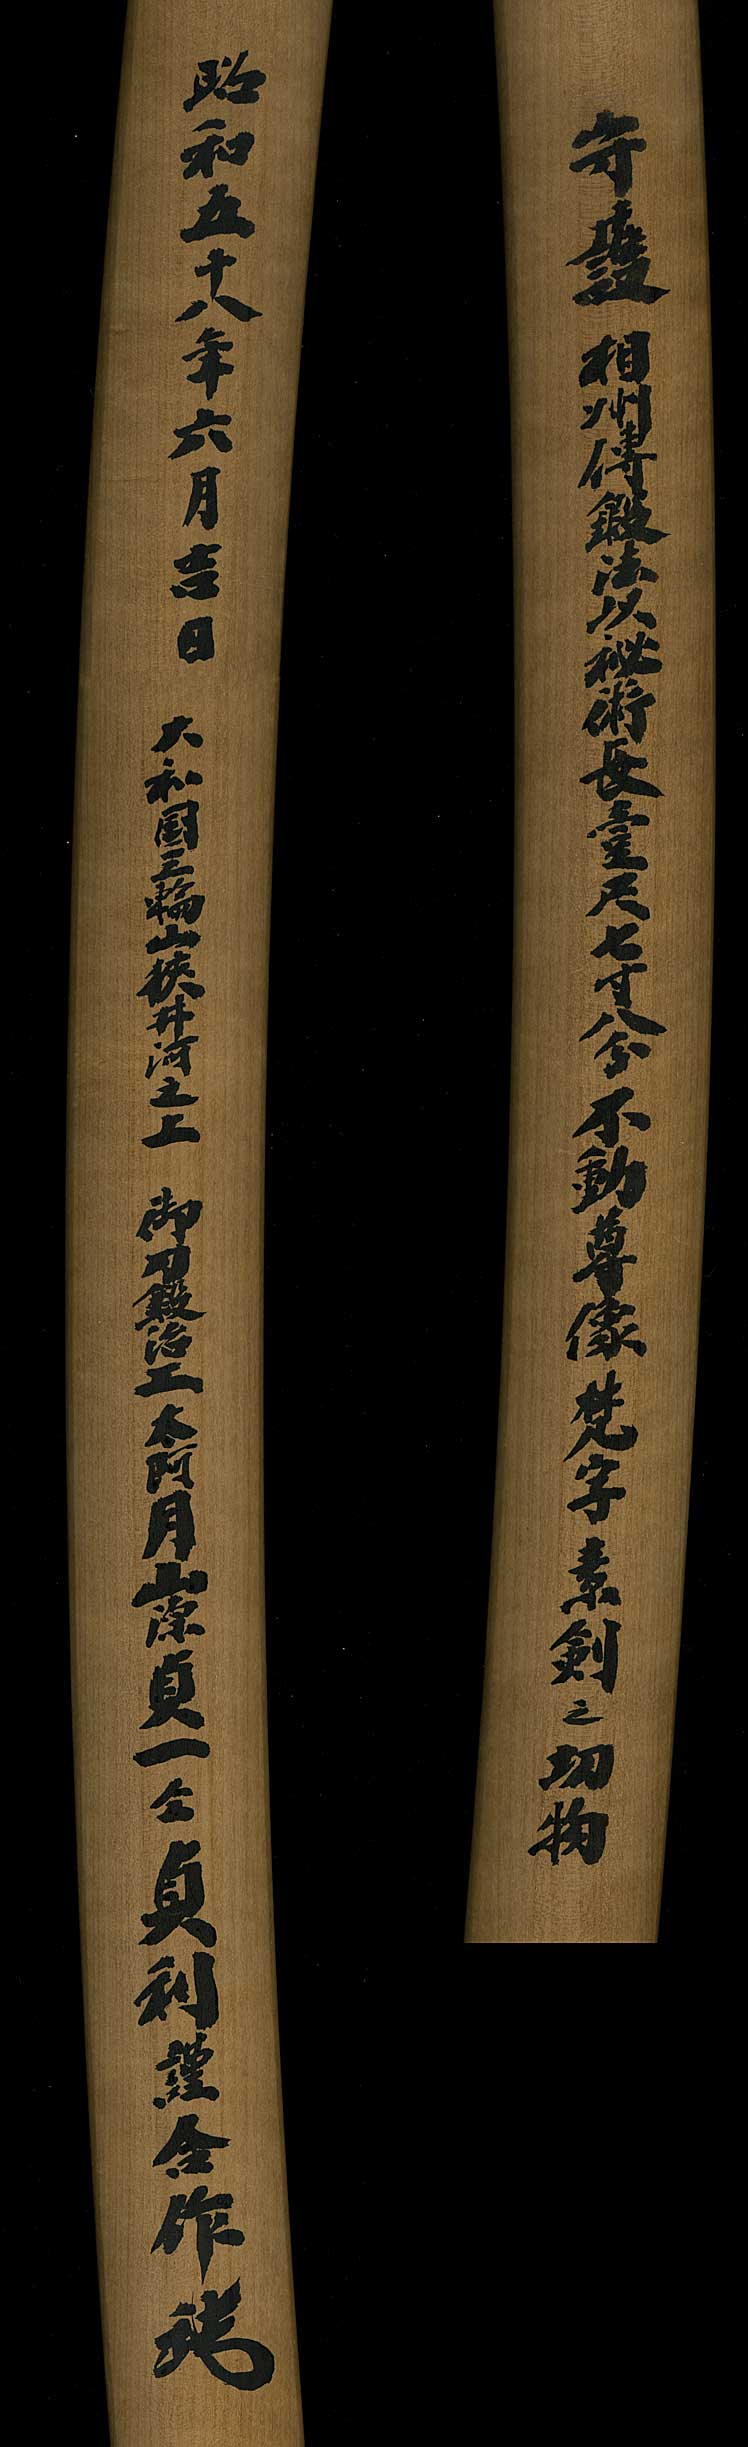 守護 相州傳鍛法以秘術長壹尺七寸八分不動尊像梵字素剣之切物
昭和五十八年六月吉日 大和国三輪山狭井河之上 御刀鍛冶工太阿月山源貞一仝貞利謹合作